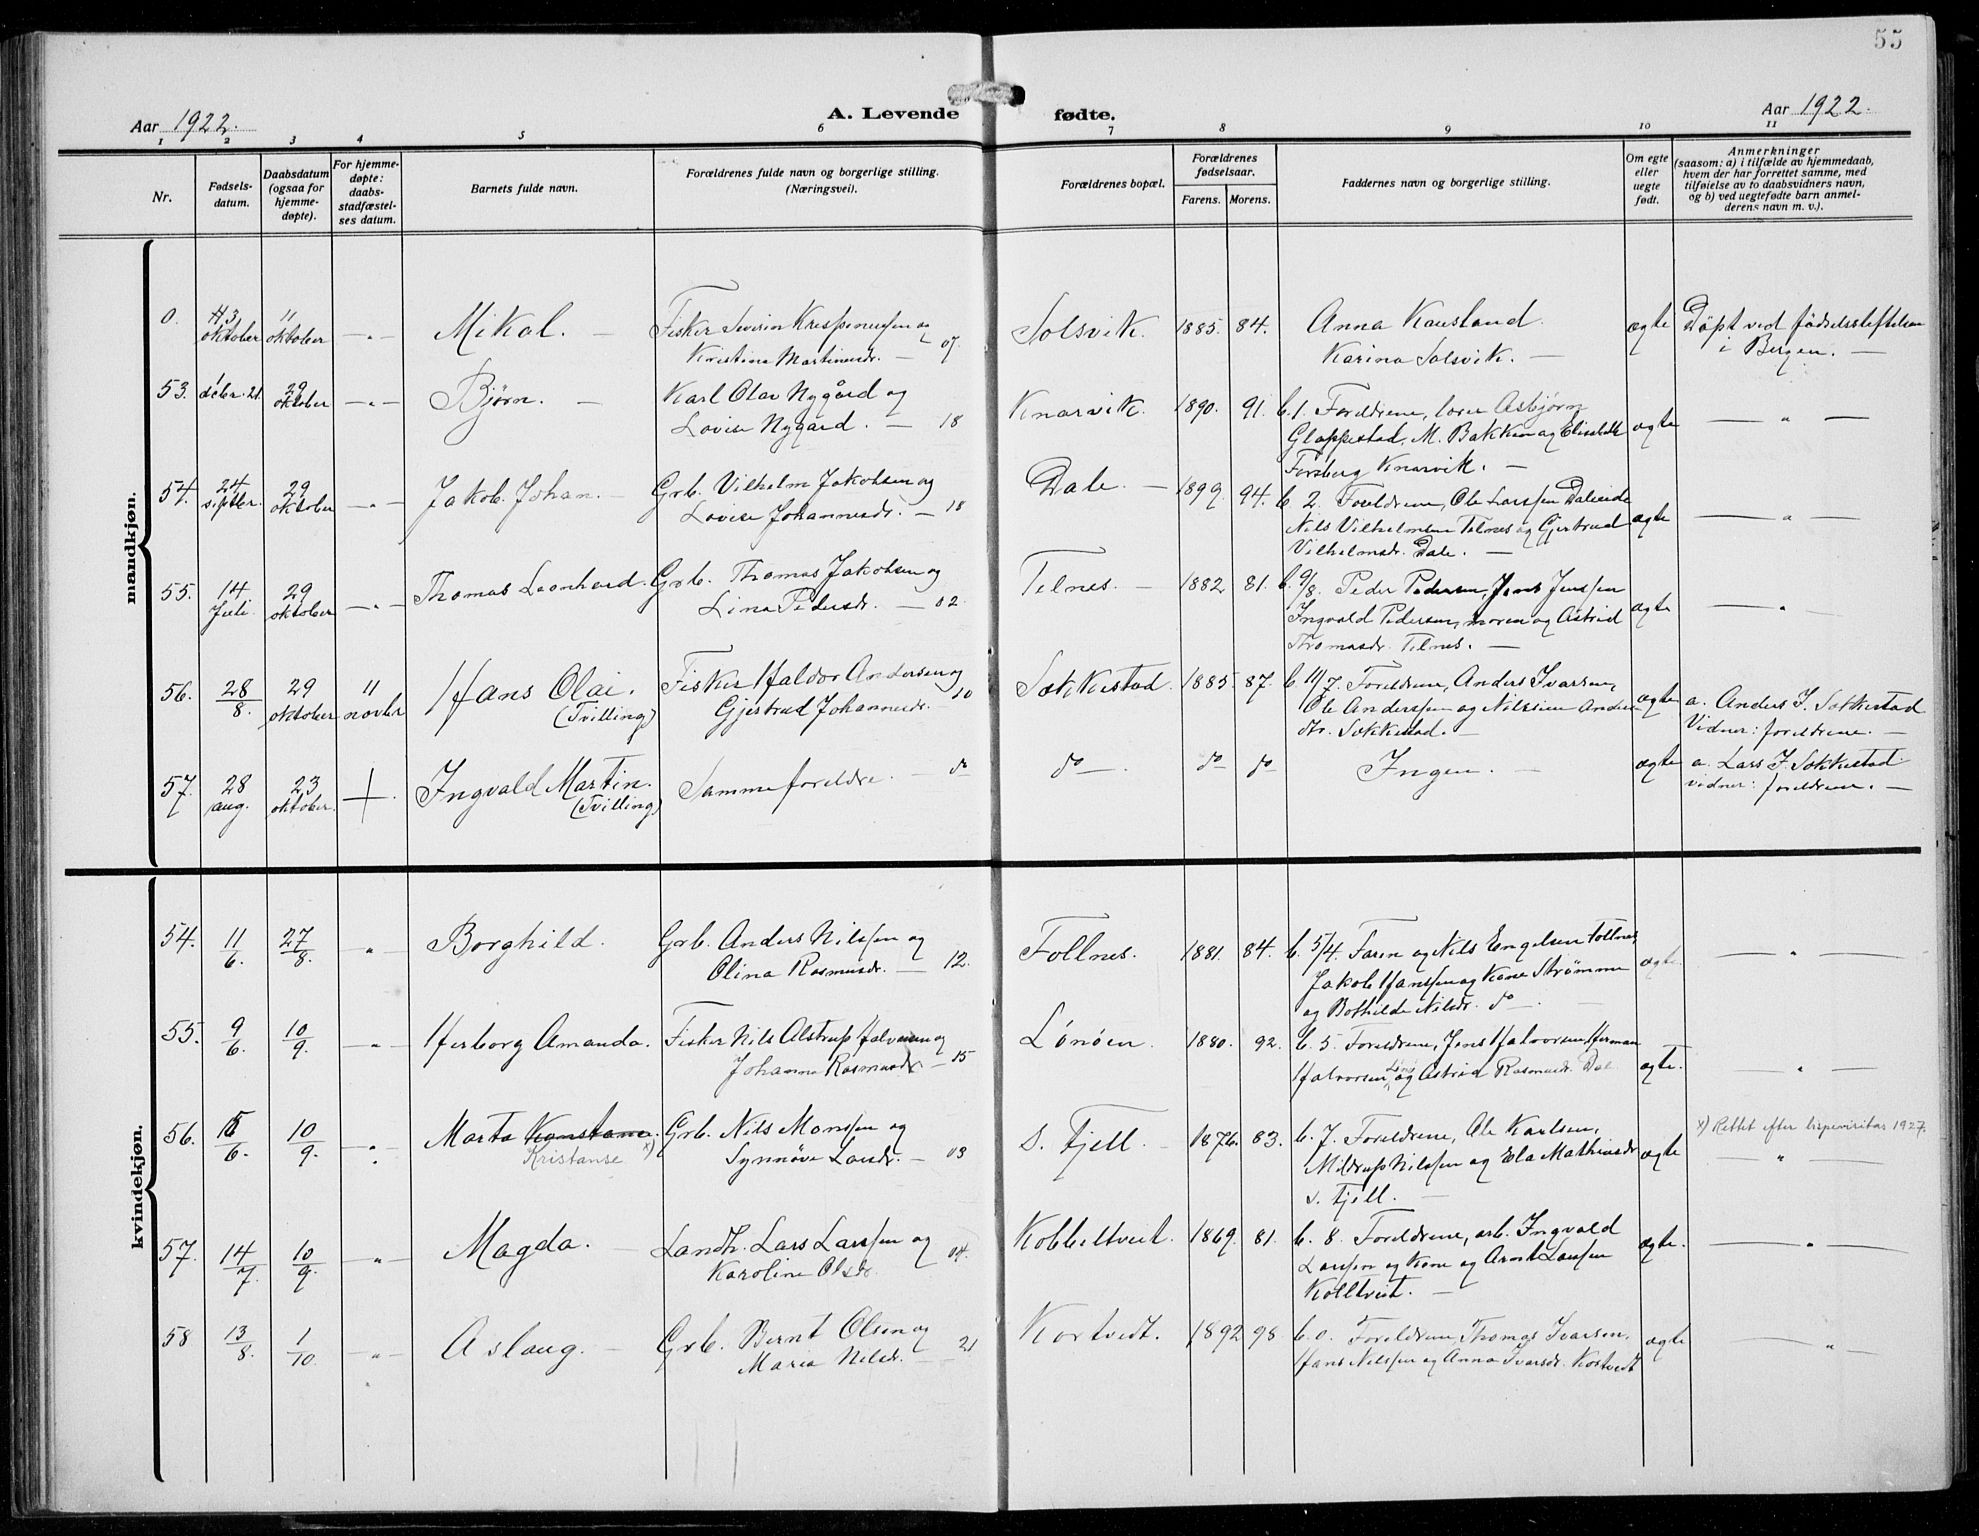 55
Aar 1922.
A. Levende fødte.
Aar 1922.
1 2 3 4 5 6 7 8 9 10 11
Nr.
Fødsels-
datum.
Daabsdatum
(ogsaa for
hjemme-
døpte).
For hjemme-
døpte:
daabs-
stadfæstel-
ses datum.
Barnets fulde navn.
Forældrenes fulde navn og borgerlige stilling.
(Næringsvei).
Forældrenes bopæl.
Forældrenes
fødselsaar.
Farens. Morens.
Faddernes navn og borgerlige stilling.
Om egte
eller
uegte
født.
Anmerkninger
(saasom: a) i tilfælde av hjemmedaab,
hvem der har forrettet samme, med
tilføielse av to daabsvidners navn,
og b) ved uegtefødte barn anmel-
derens navn m. v.).
mandkjøn.
0. oktober 11 oktober Mikal. Fisker Severin Krespinussen og
Kristina Martinusdr. 07. Solsvik. 1885. 84. Anna Kausland
Karina Solsvik. ægte Døpt ved fødselsstiftelsen
i Bergen.
53. 1 deber. 21. 29 oktober Bjørn. Karl Olav Nygård og
Lovise Nygård. 18 Knarvik. 1890. 91. b. 1. Foreldrene, lærer Asbjørn
Gloppestad, M. Bakken og Elisabeth
Forsberg Knarvik. ægte
54. 24 septbr. 29 oktober Jakob Johan. Grb. Vilhelm Jakobsen og
Lovise Johannesdr. 18 Dale. 1899. 94. b. 2. Foreldrene, Ole Larssen Daleide
Nils Vilhelmsen Telnes og Gjertrud
Vilhelmsdr. Dale. ægte
55. 14 Juli. 29 oktober Thomas Leonhard. Grb. Thomas Jakobsen og
Lina Pedersdr. 02. Telnes. 1882 81. b. 9/8. Peder Pedersen, Jens Jenssen
Ingvald Pedersen, moren og Astrid
Thomasdr. Telnes. ægte
56. 28/8. 29 oktober 11 novber Hans Olai.
(Tvilling) Fisker Haldor Andersen og
Gjertrud Johannesdr. 10 Sækkestad. 1885. 87. b. 11/7. Foreldrene, Anders Ivarsen,
Ole Anderssen og Nilsine Anders
dtr. Sækkestad. ægte a. Anders I. Sækkestad
Vidner: foreldrene.
57. 28 aug. 23 oktober. + Ingvald Martin.
(Tvilling) Samme foreldre. do do do do Ingen. ægte a. Lars I. Sækkestad
vidner: foreldrene.
kvindekjøn.
54. 11/6. 27/8. Borghild. Grb. Anders Nilssen og
Olina Rasmusdr. 12. Follnes. 1881. 84. b. 5/4. Faren og Nils Engelsen Follnes
Jakob Hanssen og Kone Strømme
og Bothilde Nilsdr. do ægte
55. 9/6. 10/9. Herborg Amanda. Fisker Nils Alstrup Halvorsen og
Johanna Rasmusdr. 15 Lønøen. 1880. 92. b. 5. Foreldrene, Jens Halvorsen, Herman
Halvorsen og Astrid Rasmusdr. ægte.
56. 15/6. 10/9. Marta Konstanse.
Kristanse x) Grb. Nils Monssen og
Synnøve Larsdr. 03 S. Fjell. 1876. 83. b. 7. Foreldrene, Ole Karlsen,
Mildrup Nilssen og Ela Mathiasdr
S. Fjell. ægte x) Rettet efter bispevisitas 1927.
57. 14/7. 10/9. Magda. Landh. Lars Larssen og
Karoline Olsdr. 04. Kobbeltveit. 1869. 81. b. 8. Foreldrene, arb. Ingvald
Larssen og Kone og Arnt Larssen
Kolltveit. ægte.
58 13/8. 1/10. Aslaug. Grb. Bernt Olsen og
Maria Nilsdr. 21 Kortvedt. 1892 98 b. 0. Foreldrene Thomas Ivarsen.
Hans Nilssen og Anna Ivarsdr. Kortvedt ægte